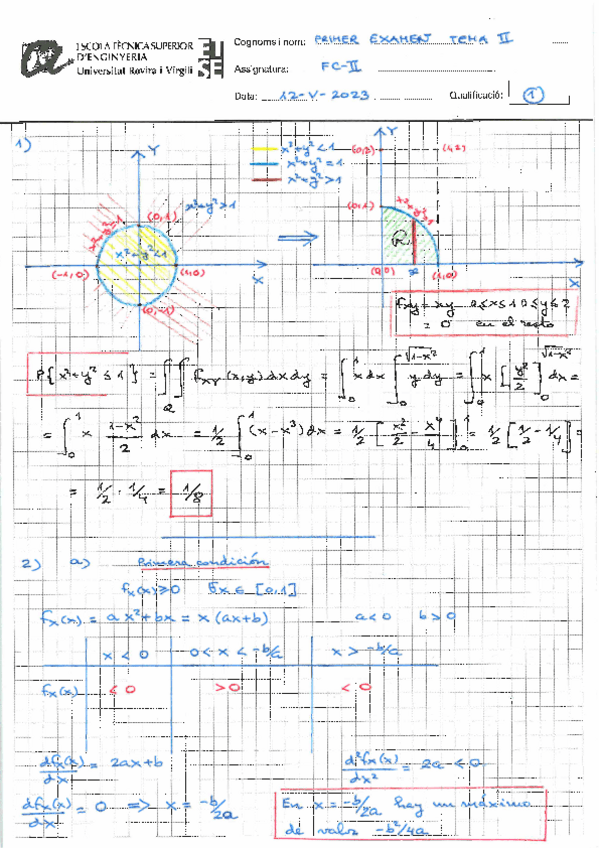 ESCOLA TÈCNICA SUPERIOR
D'ENGINYERIA
Universitat Rovira i Virgili
ETSE
Cognoms i nom: PRIMER EXAMEN TEMA II
Assignatura: FC-II
Data: 12-V-2023 Qualificació: 1
1)
Y
x²+y²<1
x²+y²=1
x²+y²>1
Y
(0,2)
(1,2)
x²+y²>1
(0,1)
x²+y²>1
x²+y²<1
(-1,0)
(1,0)
X
(0,-1)
(0,1)
x²+y²=1
(0,0)
x
(1,0)
X
fxy = xy 0≤x≤1 0≤y≤2
= 0 en el resto
P{x²+y²≤1} = ∫∫ fxy(x,y) dx dy = ∫₀¹ x dx ∫₀^√(1-x²) y dy = ∫₀¹ x [y²/2]₀^√(1-x²) dx =
= ∫₀¹ x (1-x²)/2 dx = 1/2 ∫₀¹ (x-x³) dx = 1/2 [x²/2 - x⁴/4]₀¹ = 1/2 [1/2 - 1/4] =
= 1/2 · 1/4 = 1/8
2) a) Primera condición
fx(x)≥0 ∀x ∈ [0,1]
fx(x) = ax²+bx = x(ax+b) a<0 b>0
x < 0 0 < x < -b/a x > -b/a
fx(x) < 0 > 0 < 0
dfx(x)/dx = 2ax+b d²fx(x)/dx² = 2a < 0
dfx(x)/dx = 0 => x = -b/2a
En x = -b/2a hay un máximo
de valor -b²/4a